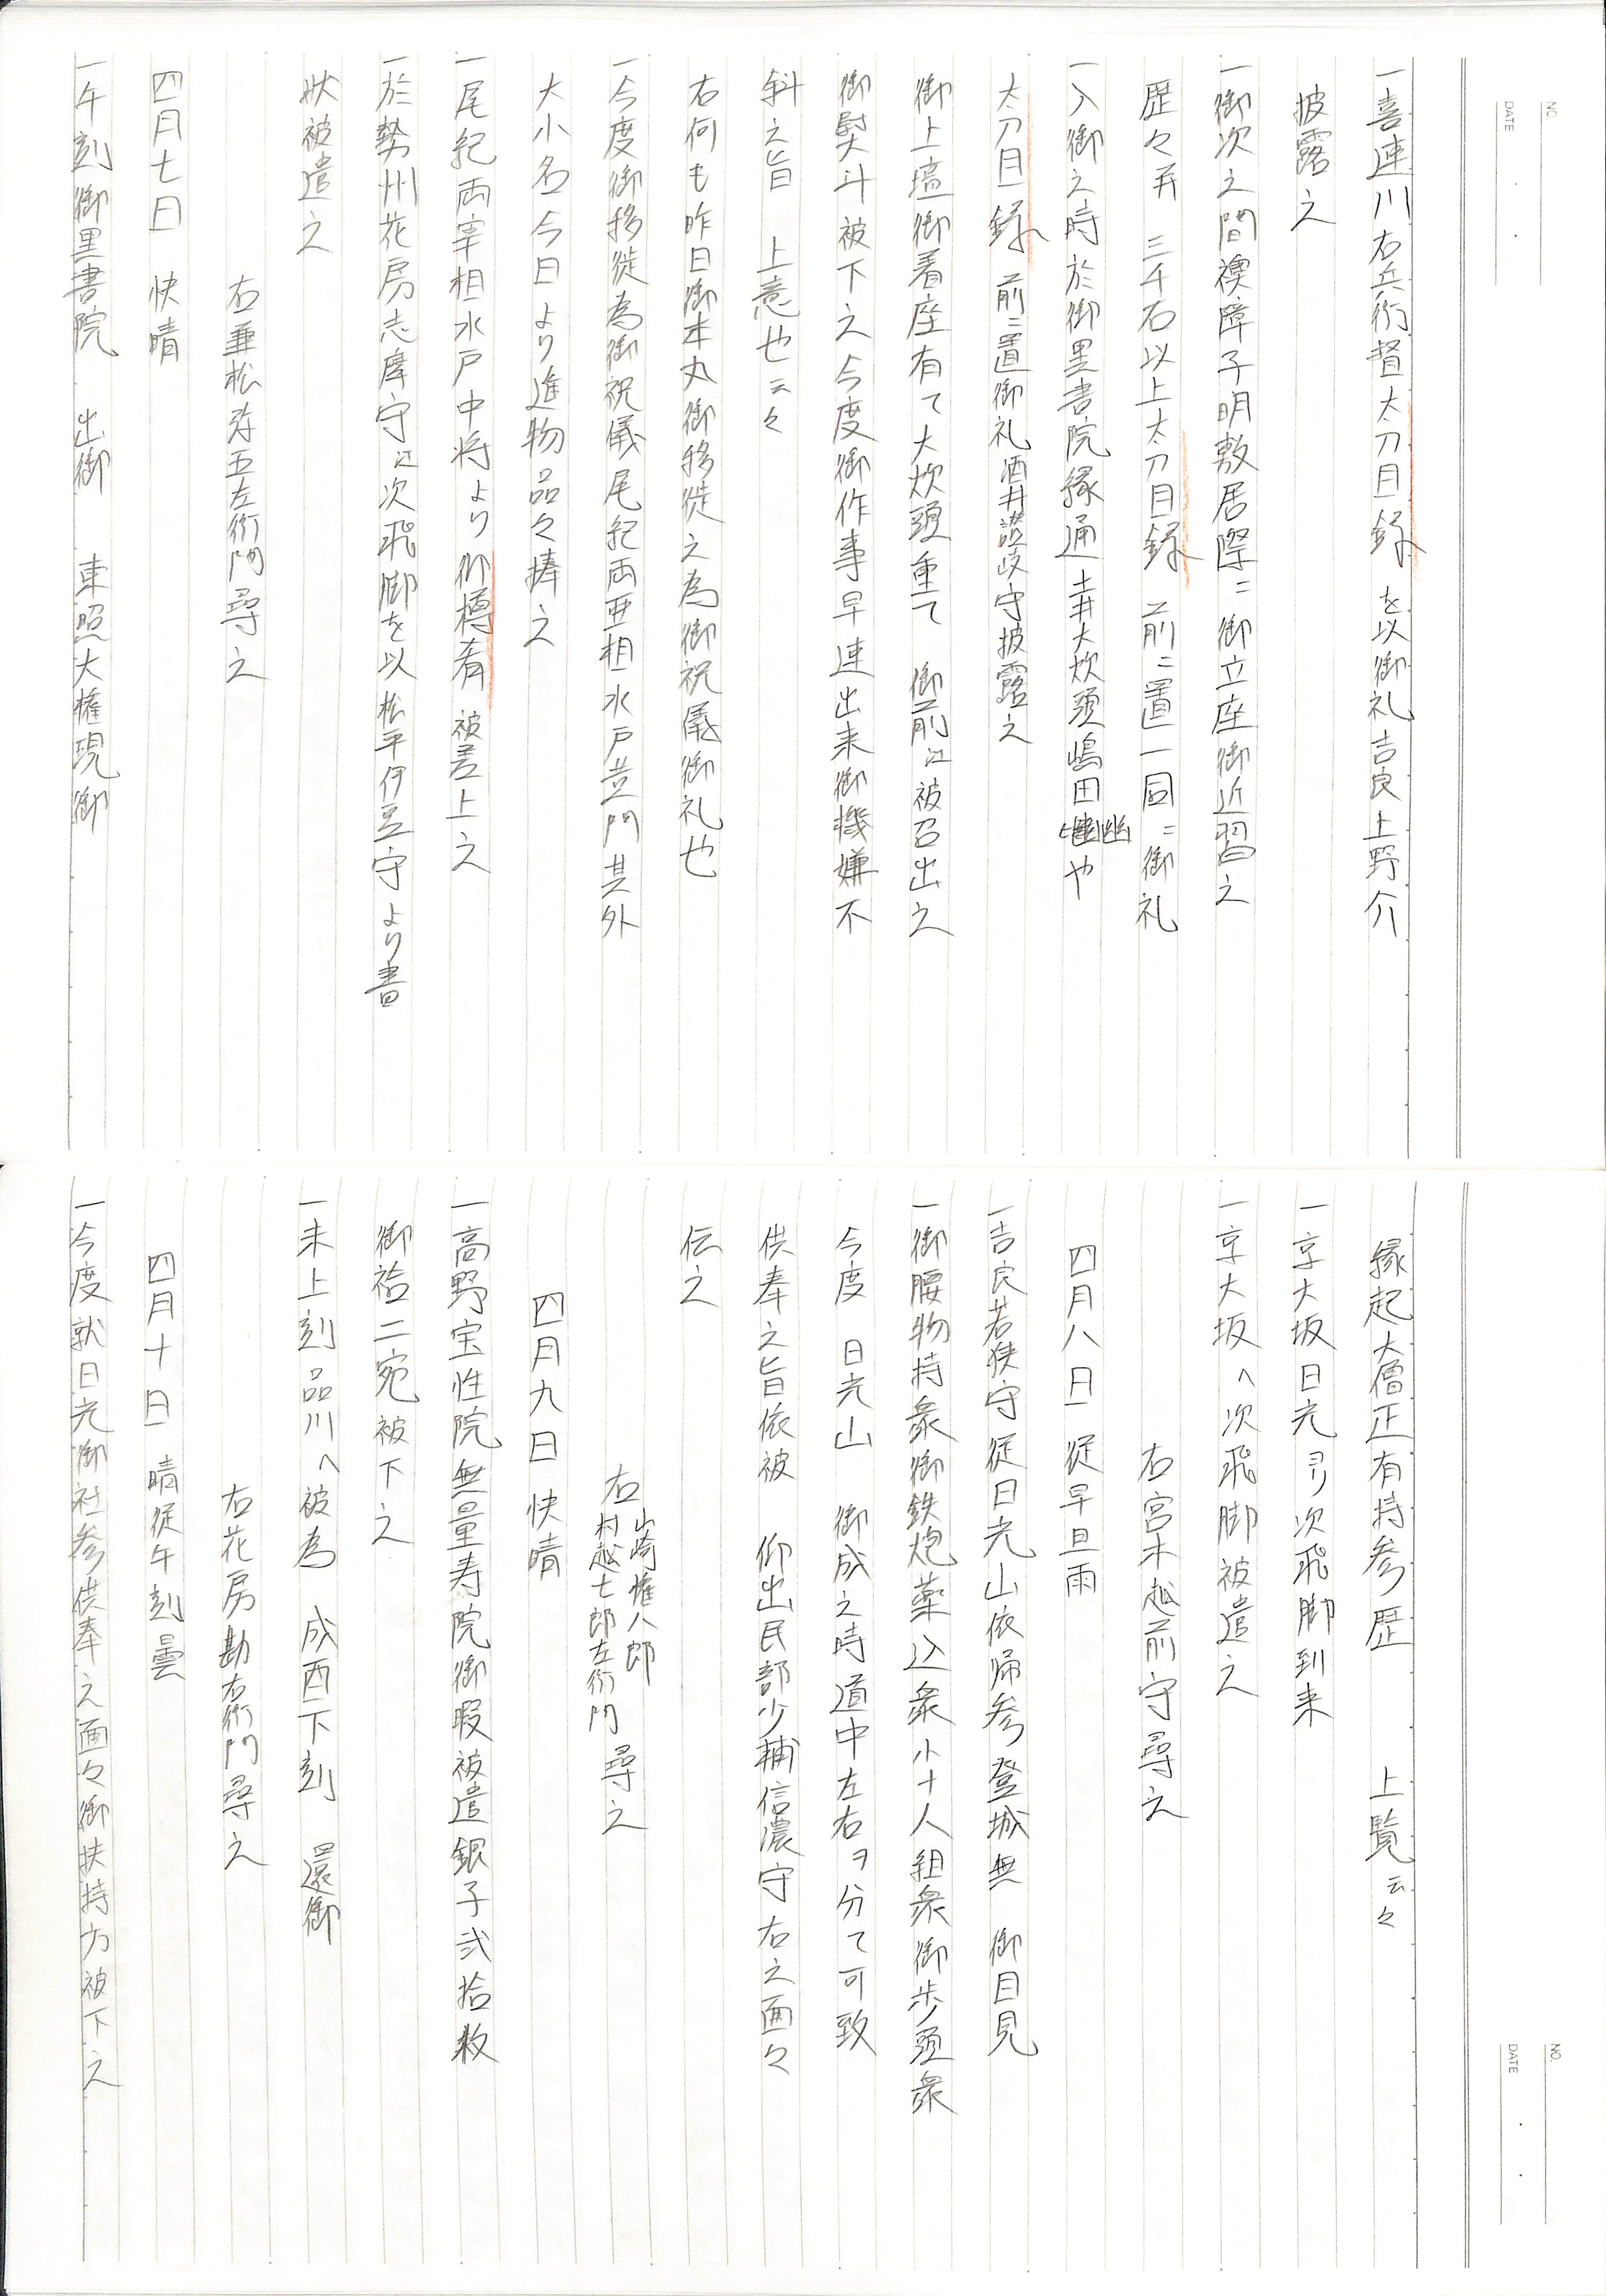 NO.
DATE
一喜連川右兵衛督太刀目録を以御礼吉良上野介
披露之
一御次之間襖障子明敷居際ニ御立座御近習之
歴々并 三千石以上太刀目録 前ニ置一同ニ御礼
一入御之時於御黒書院縁通土井大炊頭嶋田幽や
太刀目録 前ニ置御礼酒井讃岐守披露之
御上壇御着座有て大炊頭重て 御前江被召出之
御熨斗被下之今度御作事早速出来御機嫌不
斜之旨 上意也云々
右何も昨日御本丸御移徙之為御祝儀御礼也
一今度御移徙為御祝儀尾紀両亜相水戸黄門其外
大小名今日より進物品々捧之
一尾紀両宰相水戸中将より御樽肴 被差上之
一於勢州花房志摩守江次飛脚を以松平伊豆守より書
状被遣之
右兼松弥五左衛門尋之
四月七日 快晴
一午刻御黒書院 出御 東照大権現御
NO.
DATE
縁起大僧正有持参歴 上覧云々
一京大坂日光ヨリ次飛脚到来
一京大坂へ次飛脚被遣之
右宮木越前守尋之
四月八日 従早旦雨
一吉良若狭守従日光山依帰参登城無 御目見
一御腰物持衆御鉄炮薬込衆小十人組衆御歩頭衆
今度 日光山 御成之時道中左右ヲ分て可致
供奉之旨依被 仰出民部少輔信濃守右之面々
伝之
右 山崎権八郎 村越七郎左衛門 尋之
四月九日 快晴
一高野宝性院無量寿院御暇被遣銀子弐拾枚
御袷二宛被下之
一未上刻品川へ被為 成酉下刻 還御
右花房勘右衛門尋之
四月十日 晴従午刻曇
一今度就日光御社参供奉之面々御扶持方被下之